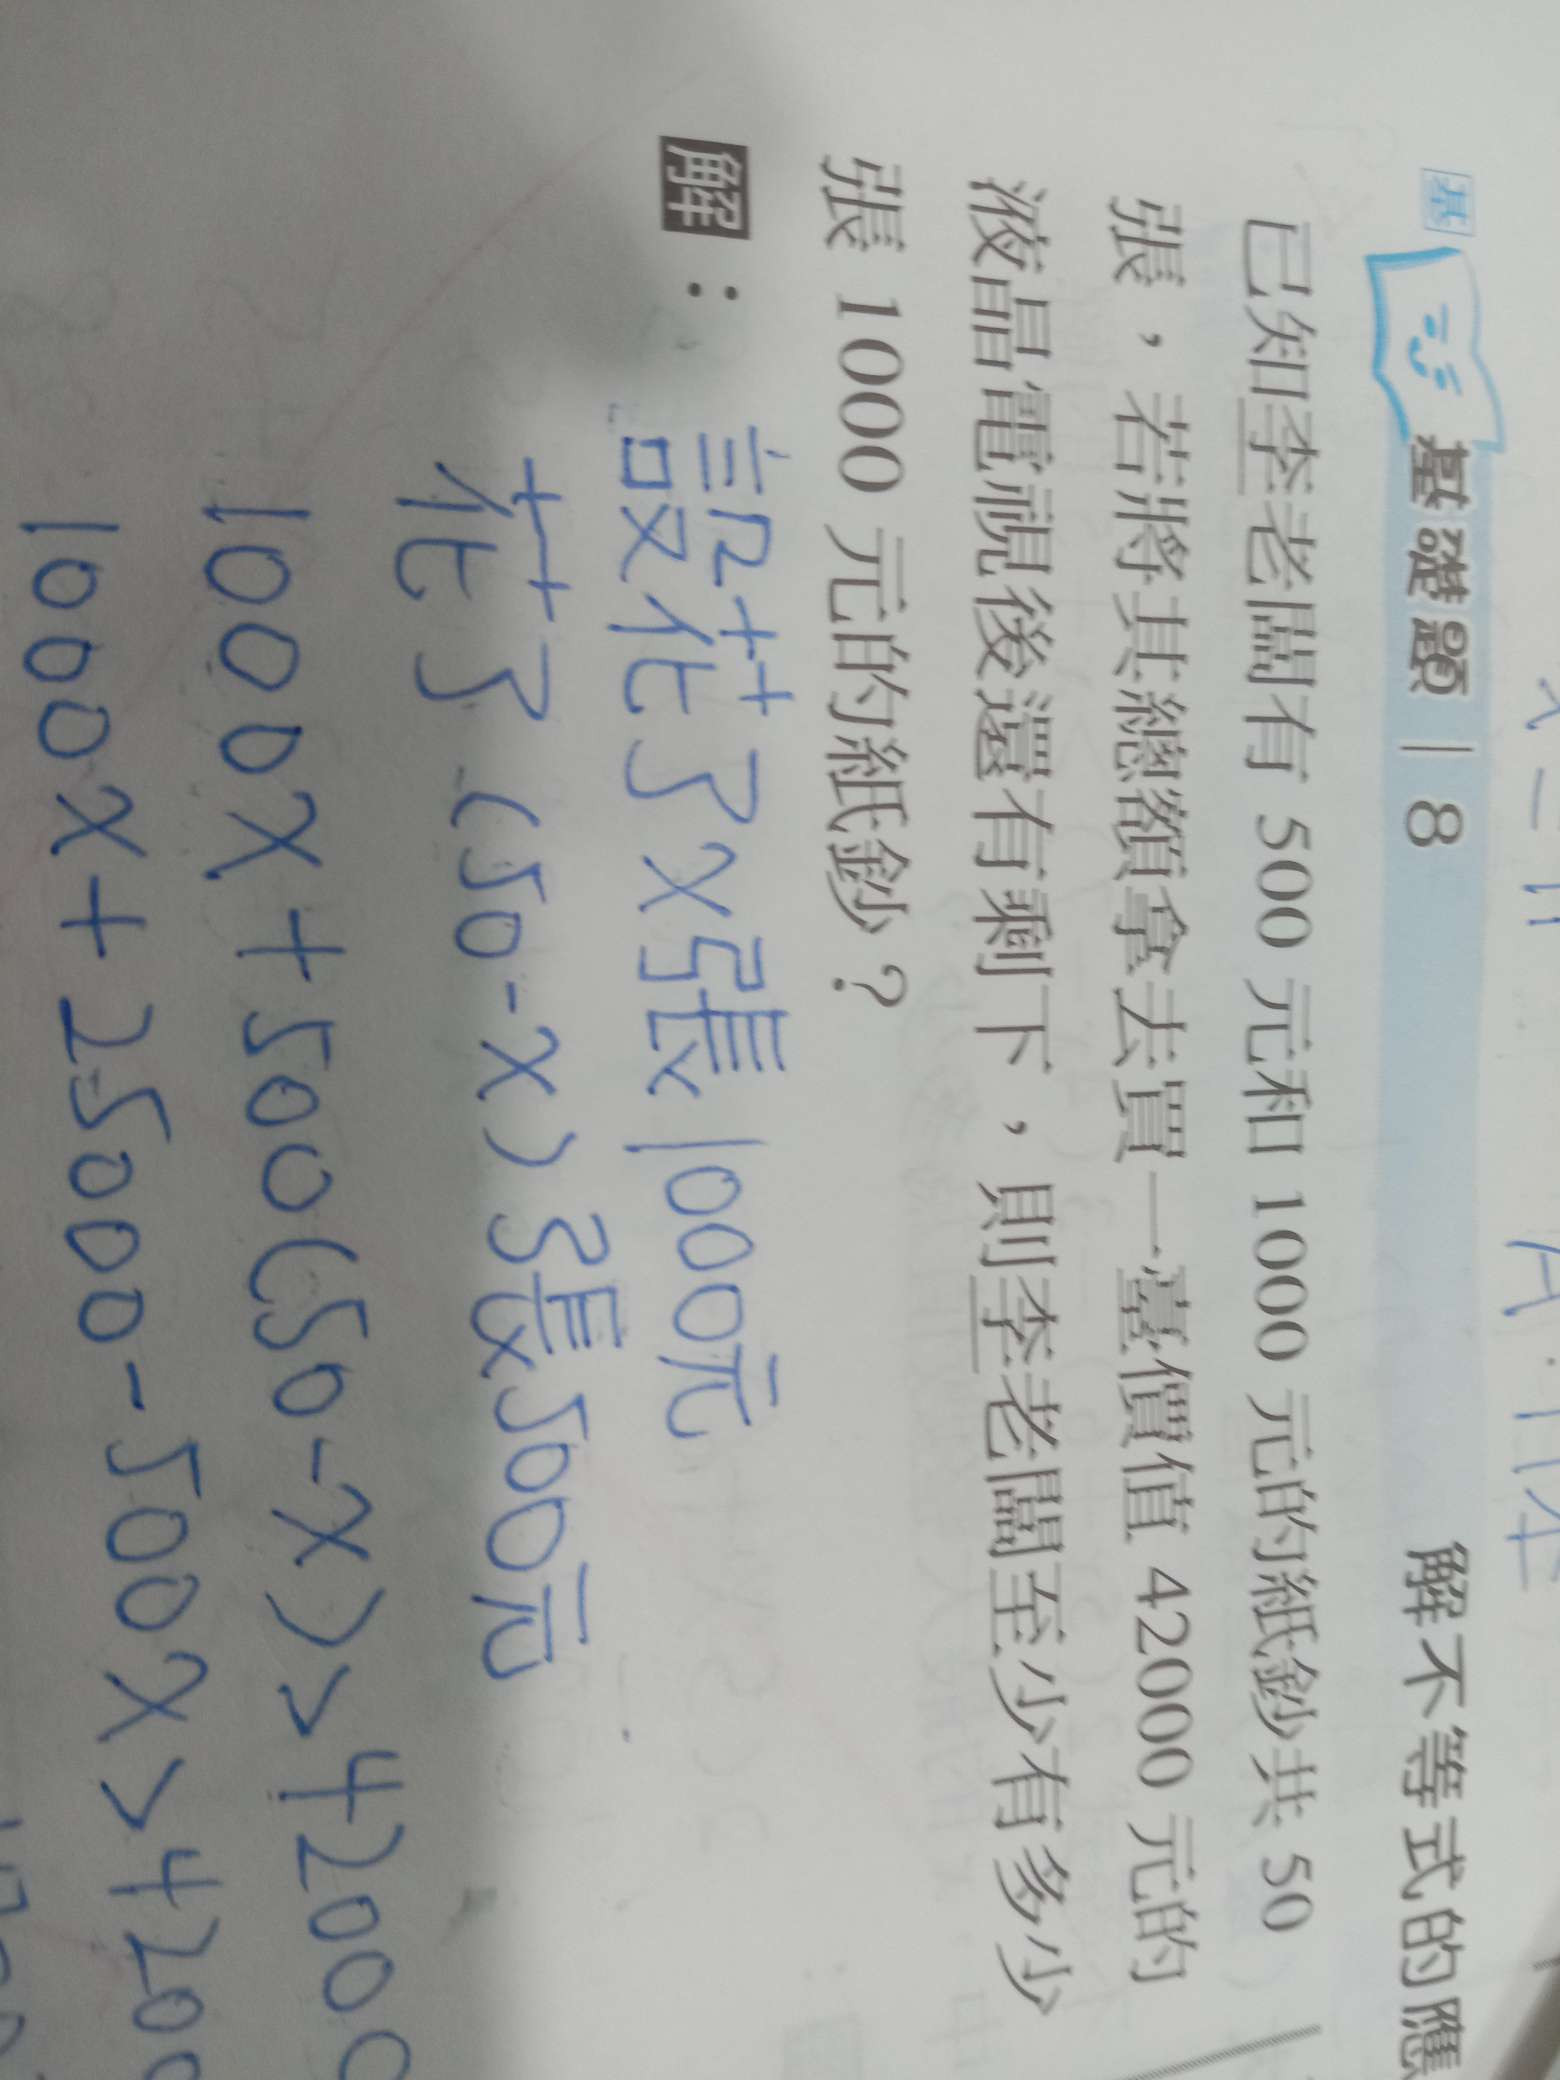 基
基礎題 | 8 解不等式的應
已知李老闆有 500 元和 1000 元的紙鈔共 50
張，若將其總額拿去買一臺價值 42000 元的
液晶電視後還有剩下，則李老闆至少有多少
張 1000 元的紙鈔？
解：
設花了x張1000元
花了(50-x)張500元
1000x+500(50-x)>42000
1000x+25000-500x>4200